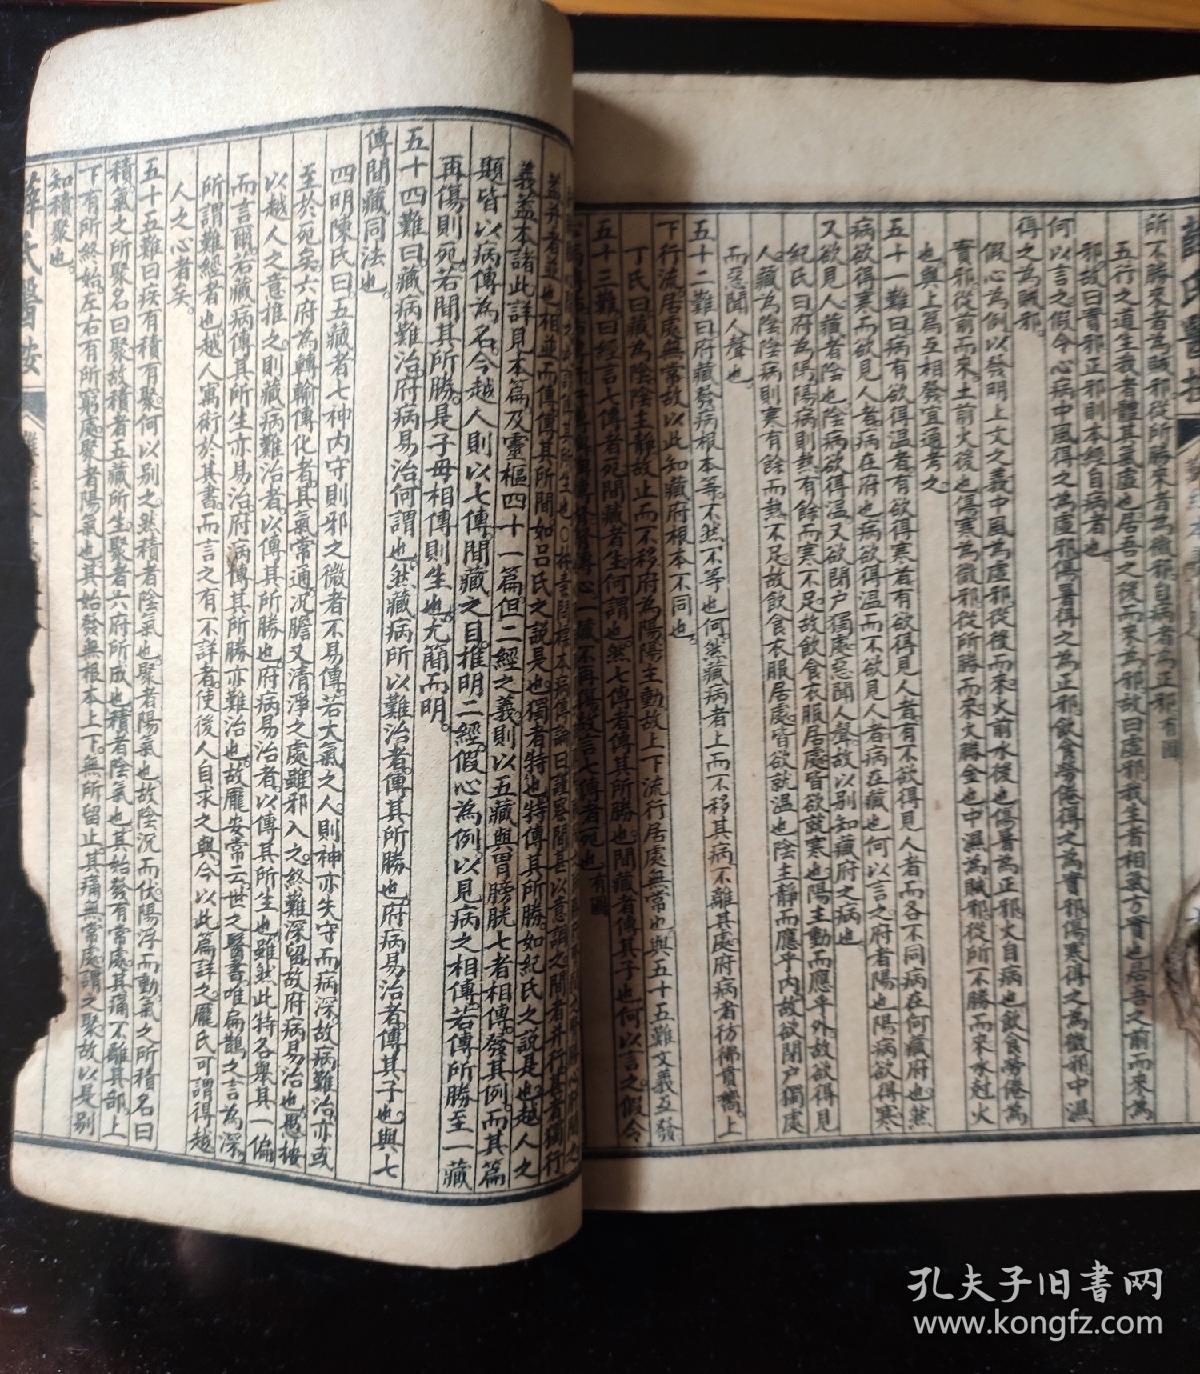 所不勝來者為賊邪從所勝來者為微邪自病者為正邪有圖
五行之道生我者體其氣虛也居吾之後而來為邪故曰虛邪我生者相氣方實也居吾之前而來為
邪故曰實邪正邪則本經自病者也
何以言之假令心病中風得之為虛邪傷暑得之為正邪飲食勞倦得之為實邪傷寒得之為微邪中濕
得之為賊邪
假心為例以發明上文之義中風為虛邪從後而來火前水後也傷暑為正邪火自病也飲食勞倦為
實邪從前而來土前火後也傷寒為微邪從所勝而來火勝金也中濕為賊邪從所不勝而來水尅火
也與上篇互相發宜通考之
五十一難曰病有欲得溫者有欲得寒者有欲得見人者有不欲得見人者而各不同病在何藏府也然
病欲得寒而欲見人者病在府也病欲得溫而不欲見人者病在藏也何以言之府者陽也陽病欲得寒
又欲見人藏者陰也陰病欲得溫又欲閉户獨處惡聞人聲故以别知藏府之病也
紀氏曰府為陽陽病則熱有餘而寒不足故飲食衣服居處皆欲就寒也陽主動而應乎外故欲得見
人藏為陰陰病則寒有餘而熱不足故飲食衣服居處皆欲就溫也陰主靜而應乎内故欲閉户獨處
而惡聞人聲也
五十二難曰府藏發病根本等不然不等也何然藏病者上而不移其病不離其處府病者彷彿賁嚮上
下行流居處無常故以此知藏府根本不同也
丁氏曰藏為陰陰主靜故止而不移府為陽陽主動故上下流行居處無常也與五十五難文義互發
五十三難曰經言七傳者死間藏者生何謂也然七傳者傳其所勝也間藏者傳其子也何以言之假令
一藏不再傷故言七傳者死也有圖
蓋并者並也相並而傳傳其所間如吕氏之說是也獨者特也特傳其所勝如紀氏之說是也越人之
義蓋本諸此詳見本篇及靈樞四十一篇但二經之義則以五藏與胃膀胱七者相傳發其例而其篇
題皆以病傳為名今越人則以七傳間藏之目推明二經假心為例以見病之相傳若傳所勝至一藏
再傷則死若間其所勝是子母相傳則生也尤簡而明
五十四難曰藏病難治府病易治何謂也然藏病所以難治者傳其所勝也府病易治者傳其子也與七
傳間藏同法也
四明陳氏曰五藏者七神内守則邪之微者不易傳若大氣之人則神亦失守而病深故病難治亦或
至於死矣六府為轉輸傳化者其氣常通况膽又清淨之處雖邪入之終難深留故府病易治也愚按
以越人之意推之則藏病難治者以傳其所勝也府病易治者以傳其所生也雖然此特各舉其一偏
而言爾若藏病傳其所生亦易治府病傳其所勝亦難治也故龎安常云世之醫書唯扁鵲之言為深
所謂難經者也越人寓術於其書而言之有不詳者使後人自求之歟今以此篇詳之龎氏可謂得越
人之心者矣
五十五難曰疾有積有聚何以别之然積者陰氣也聚者陽氣也故陰沉而伏陽浮而動氣之所積名曰
積氣之所聚名曰聚故積者五藏所生聚者六府所成也積者陰氣也其始發有常處其痛不離其部上
下有所終始左右有所窮處聚者陽氣也其始發無根本上下無所留止其痛無常處謂之聚故以是别
知積聚也
薛氏醫按
孔夫子旧書网
www.kongfz.com